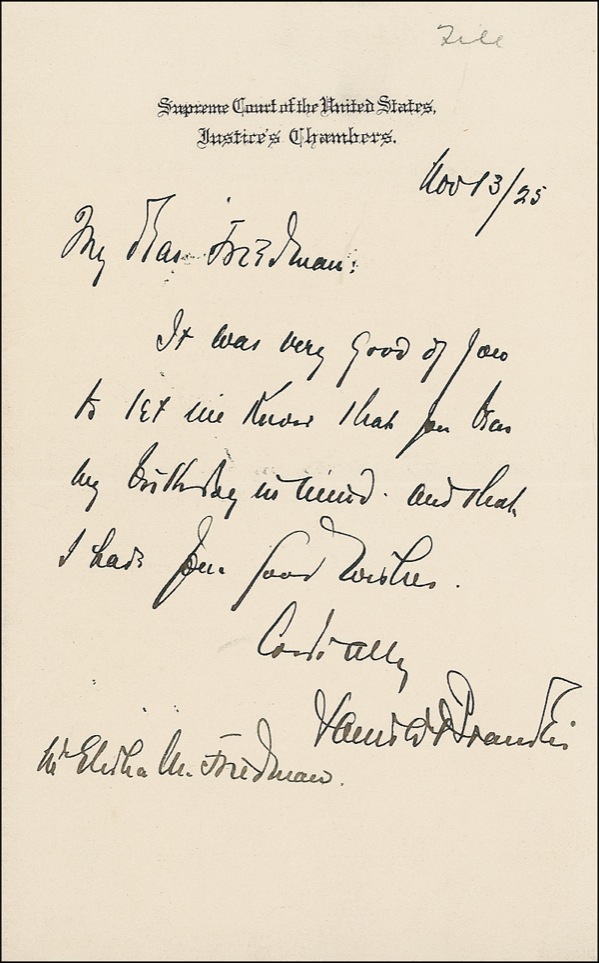 File
Supreme Court of the United States,
Justice's Chambers.
Nov 13/25
My Dear Friedman:
It was very good of you
to let me know that you bear
my birthday in mind and that
I have your good wishes.
Cordially
Louis D Brandeis
Mr Elisha M. Friedman.